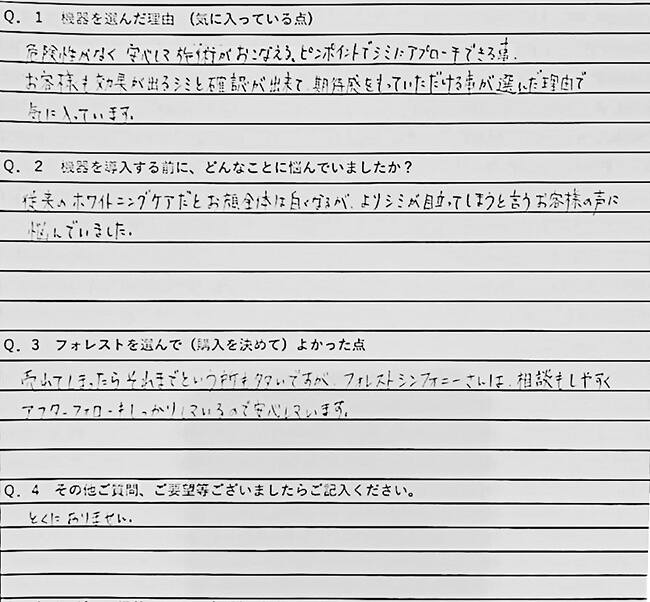 Q．1　機器を選んだ理由　（気に入っている点）
危険性がなく 安心して施術がおこなえる、ピンポイントでシミにアプローチできる事。
お客様も効果が出るシミと確認が出来て、期待感をもっていただける事が選んだ理由で
気に入っています。
Q．2　機器を導入する前に、どんなことに悩んでいましたか？
従来のホワイトニングケアだとお顔全体は白くなるが、よりシミが目立ってしまうと言うお客様の声に
悩んでいました。
Q．3　フォレストを選んで（購入を決めて）よかった点
売れてしまったらそれまでという所も多いですが、フォレストシンフォニーさんは、相談もしやすく
アフターフォローもしっかりしているので安心しています。
Q．4　その他ご質問、ご要望等ございましたらご記入ください。
とくにありません。